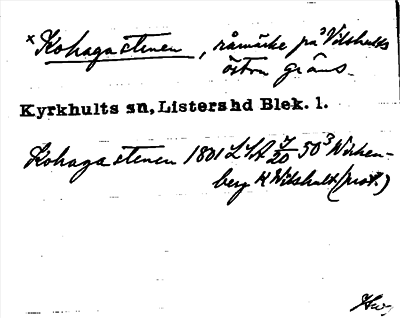 x Kohagastenen, råmärke på ³Vilshults
östra gräns.
Kyrkhults sn, Listers hd Blek. l.
Kohagastenen 1801 LSA 7/20 50³ Wirken-
berg K Wilshult (prot.)